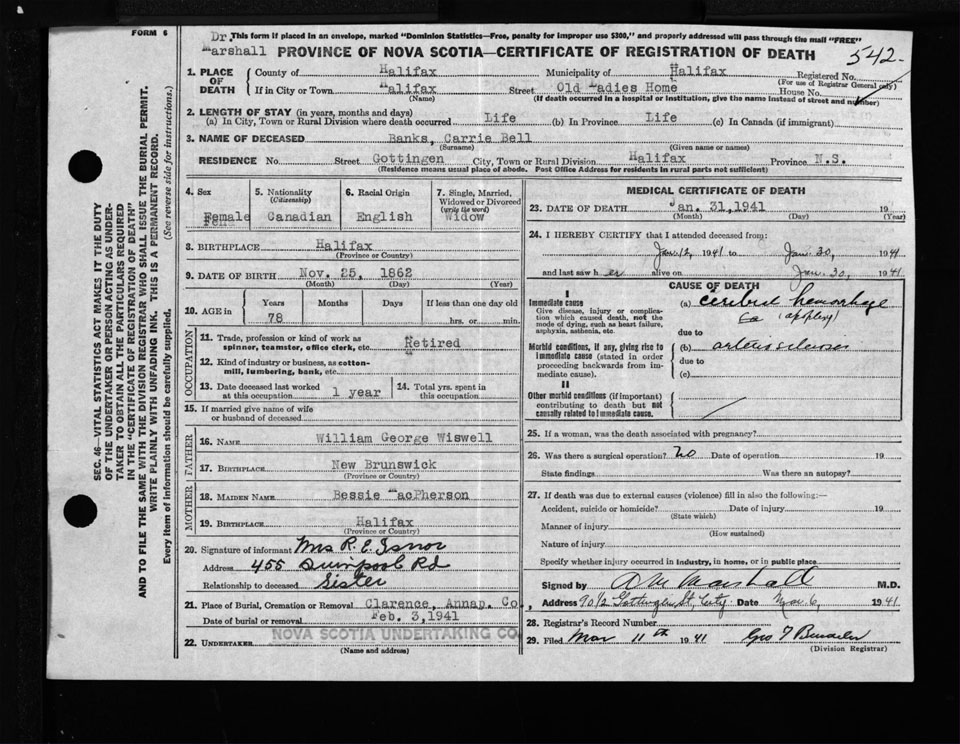 FORM 6
Dr. This form if placed in an envelope, marked "Dominion Statistics—Free, penalty for improper use $300," and properly addressed will pass through the mail "FREE"
Marshall PROVINCE OF NOVA SCOTIA—CERTIFICATE OF REGISTRATION OF DEATH 542-
1. PLACE OF DEATH County of Halifax Municipality of Halifax Registered No.
(For use of Registrar General only)
If in City or Town Halifax Street Old Ladies Home House No.
(Name) (If death occurred in a hospital or institution, give the name instead of street and number)
2. LENGTH OF STAY (in years, months and days)
(a) In City, Town or Rural Division where death occurred Life (b) In Province Life (c) In Canada (if immigrant)
3. NAME OF DECEASED Banks, Carrie Bell
(Surname) (Given name or names)
RESIDENCE No. Street Gottingen City, Town or Rural Division Halifax Province N.S.
(Residence means usual place of abode. Post Office Address for residents in rural parts not sufficient)
4. Sex Female
5. Nationality (Citizenship) Canadian
6. Racial Origin English
7. Single, Married, Widowed or Divorced (write the word) Widow
8. BIRTHPLACE Halifax
(Province or Country)
9. DATE OF BIRTH Nov. 25, 1862
(Month) (Day) (Year)
10. AGE in Years Months Days If less than one day old
78 hrs. or min.
OCCUPATION
11. Trade, profession or kind of work as spinner, teamster, office clerk, etc. Retired
12. Kind of industry or business, as cotton-mill, lumbering, bank, etc.
13. Date deceased last worked at this occupation 1 year 14. Total yrs. spent in this occupation
15. If married give name of wife or husband of deceased
FATHER
16. NAME William George Wiswell
17. BIRTHPLACE New Brunswick
(Province or Country)
MOTHER
18. MAIDEN NAME Bessie MacPherson
19. BIRTHPLACE Halifax
(Province or Country)
20. Signature of informant Mrs R. E. Isnor
Address 455 Quinpool Rd
Relationship to deceased Sister
21. Place of Burial, Cremation or Removal Clarence, Annap. Co.,
Date of burial or removal Feb. 3, 1941
22. UNDERTAKER NOVA SCOTIA UNDERTAKING CO.
(Name and address)
MEDICAL CERTIFICATE OF DEATH
23. DATE OF DEATH Jan. 31, 1941 19
(Month) (Day) (Year)
24. I HEREBY CERTIFY that I attended deceased from:
Jan 12, 1941 to Jan. 30, 1941
and last saw her alive on Jan. 30, 1941
CAUSE OF DEATH
I
Immediate cause (a) cerebral hemorrhage
Give disease, injury or complication which caused death, not the mode of dying, such as heart failure, asphyxia, asthenia, etc.
(apoplexy)
due to
Morbid conditions, if any, giving rise to immediate cause (stated in order proceeding backwards from immediate cause). (b) arteriosclerosis
due to
(c)
II
Other morbid conditions (if important) contributing to death but not causally related to immediate cause.
25. If a woman, was the death associated with pregnancy?
26. Was there a surgical operation? No Date of operation 19
State findings Was there an autopsy?
27. If death was due to external causes (violence) fill in also the following:—
Accident, suicide or homicide? Date of injury 19
(State which)
Manner of injury
(How sustained)
Nature of injury
Specify whether injury occurred in industry, in home, or in public place
Signed by A M Marshall M.D.
Address 90 1/2 Gottingen St, City Date Mar 6, 1941
28. Registrar's Record Number
29. Filed Mar 11th 1941
(Division Registrar)
SEC. 46—VITAL STATISTICS ACT MAKES IT THE DUTY
OF THE UNDERTAKER OR PERSON ACTING AS UNDER-
TAKER TO OBTAIN ALL THE PARTICULARS REQUIRED
IN THE "CERTIFICATE OF REGISTRATION OF DEATH"
AND TO FILE THE SAME WITH THE DIVISION REGISTRAR WHO SHALL ISSUE THE BURIAL PERMIT.
WRITE PLAINLY WITH UNFADING INK. THIS IS A PERMANENT RECORD.
Every item of information should be carefully supplied. (See reverse side for instructions.)